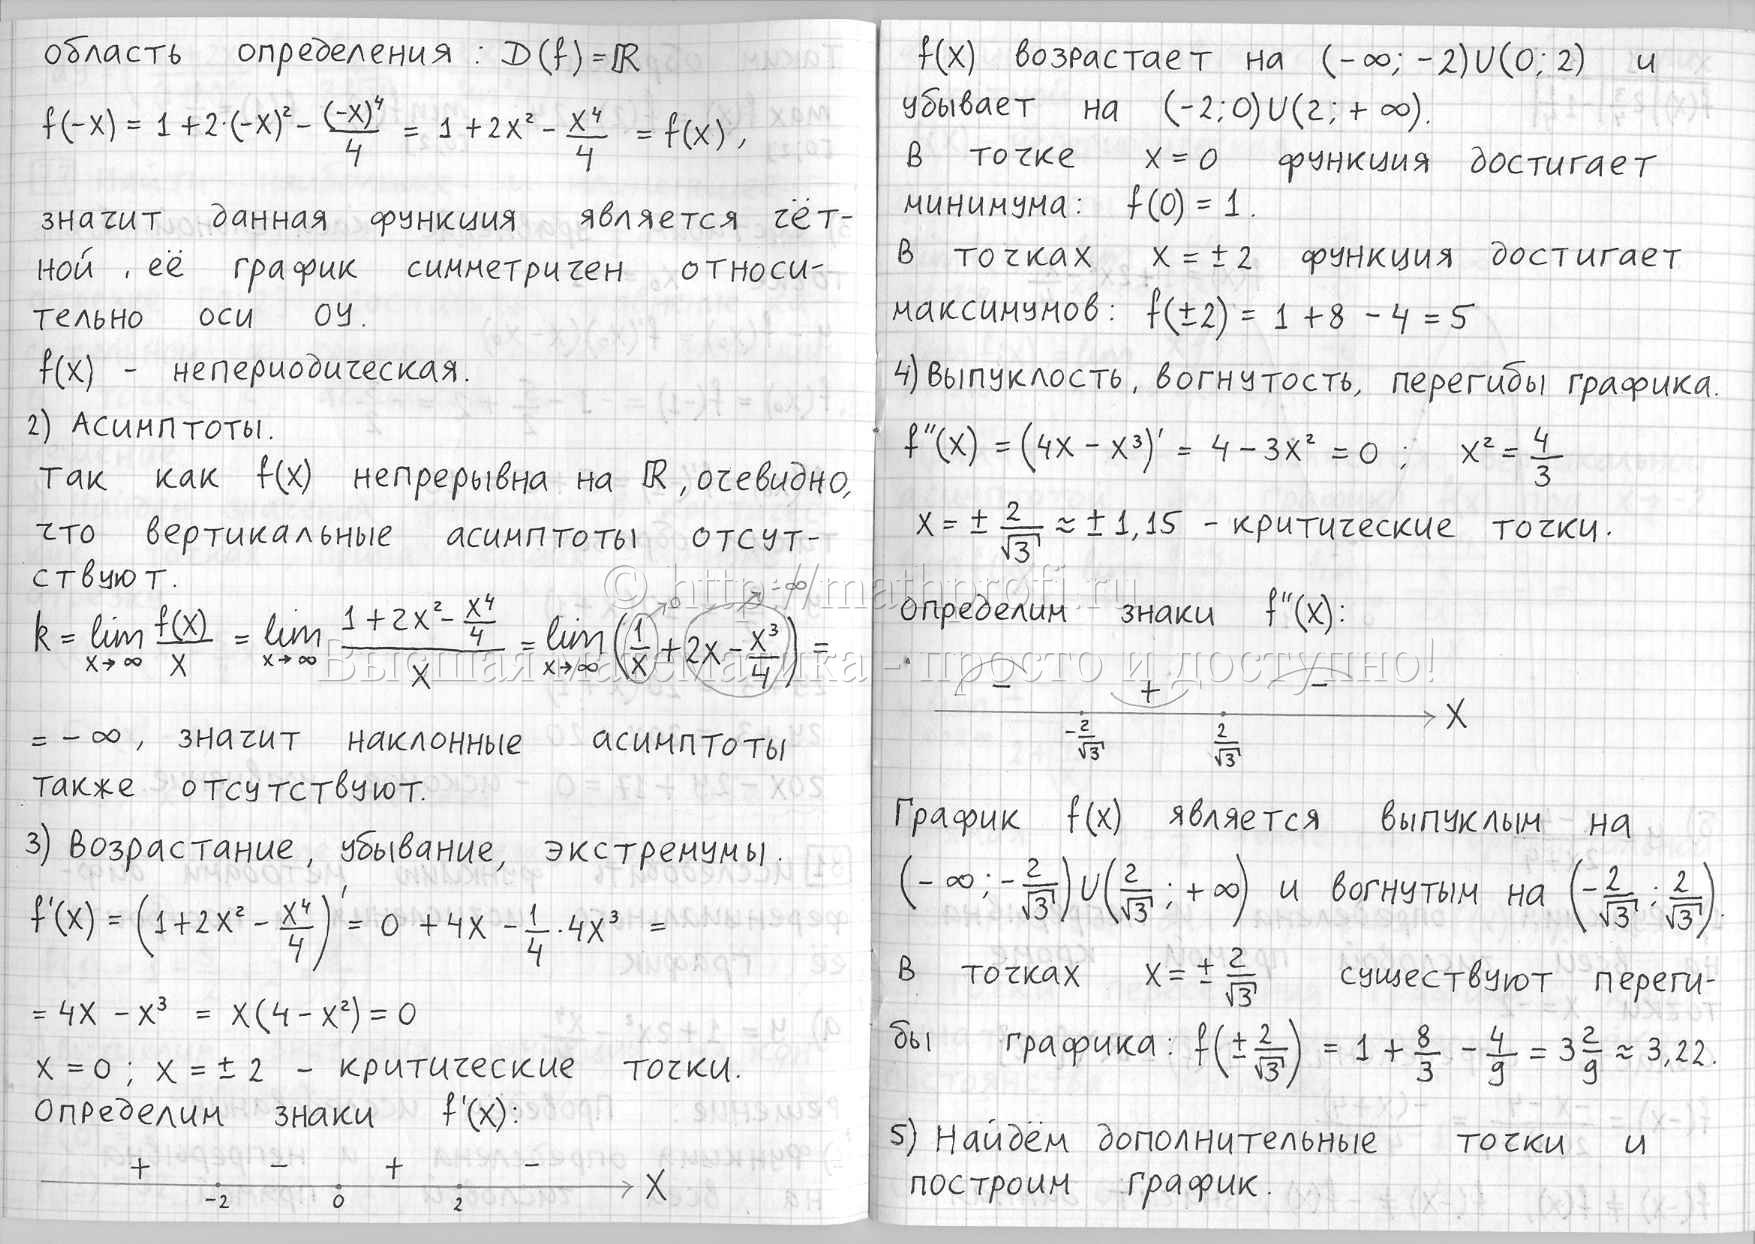 область определения: D(f)=ℝ
f(-x) = 1+2·(-x)² - (-x)⁴/4 = 1+2x² - x⁴/4 = f(x),
значит данная функция является чёт-
ной, её график симметричен относи-
тельно оси OY.
f(x) - непериодическая.
2) Асимптоты.
Так как f(x) непрерывна на ℝ, очевидно,
что вертикальные асимптоты отсут-
ствуют.
k = lim x→∞ f(x)/x = lim x→∞ (1+2x² - x⁴/4)/x = lim x→∞ (1/x →0 + 2x - x³/4 →-∞) =
= -∞, значит наклонные асимптоты
также отсутствуют.
3) Возрастание, убывание, экстремумы.
f'(x) = (1+2x² - x⁴/4)' = 0 + 4x - 1/4 · 4x³ =
= 4x - x³ = x(4 - x²) = 0
x = 0; x = ±2 - критические точки.
Определим знаки f'(x):
+ - + -
-2 0 2 X
f(x) возрастает на (-∞; -2)U(0; 2) и
убывает на (-2; 0)U(2; +∞).
В точке x = 0 функция достигает
минимума: f(0) = 1.
В точках x = ±2 функция достигает
максимумов: f(±2) = 1 + 8 - 4 = 5
4) Выпуклость, вогнутость, перегибы графика.
f''(x) = (4x - x³)' = 4 - 3x² = 0; x² = 4/3
x = ± 2/√3 ≈ ±1,15 - критические точки.
Определим знаки f''(x):
- + -
-2/√3 2/√3 X
График f(x) является выпуклым на
(-∞; -2/√3)U(2/√3; +∞) и вогнутым на (-2/√3; 2/√3).
В точках x = ± 2/√3 существуют переги-
бы графика: f(± 2/√3) = 1 + 8/3 - 4/9 = 3 2/9 ≈ 3,22.
5) Найдём дополнительные точки и
построим график.
© http://mathprofi.ru
Высшая математика - просто и доступно!